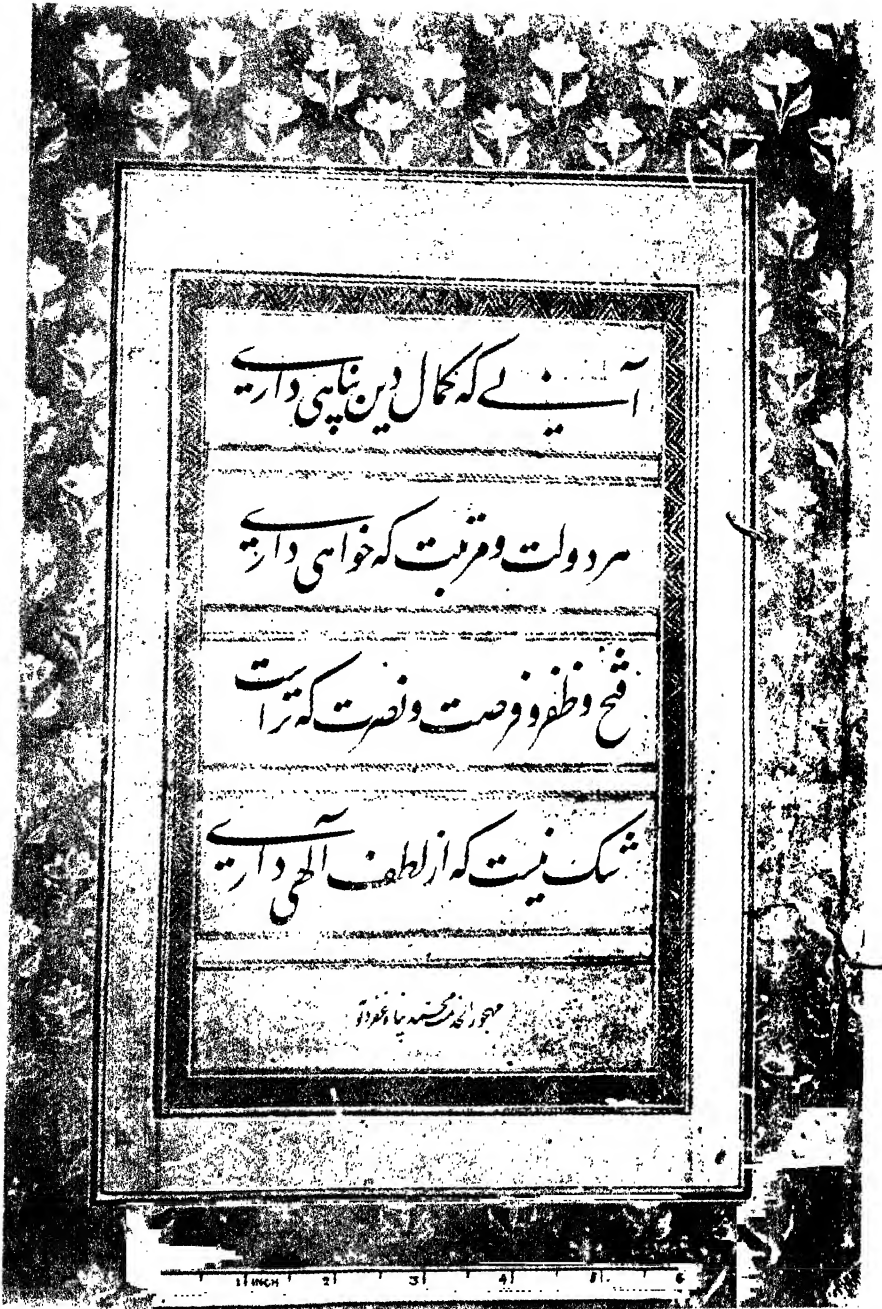 آنی که کمال دین پناهی داری
هر دولت و مرتبت که خواهی داری
فتح و ظفر و فرصت و نصرت که تراست
شک نیست که از لطف آلهی داری
محمد پناه
1 INCH 2 3 4 5 6